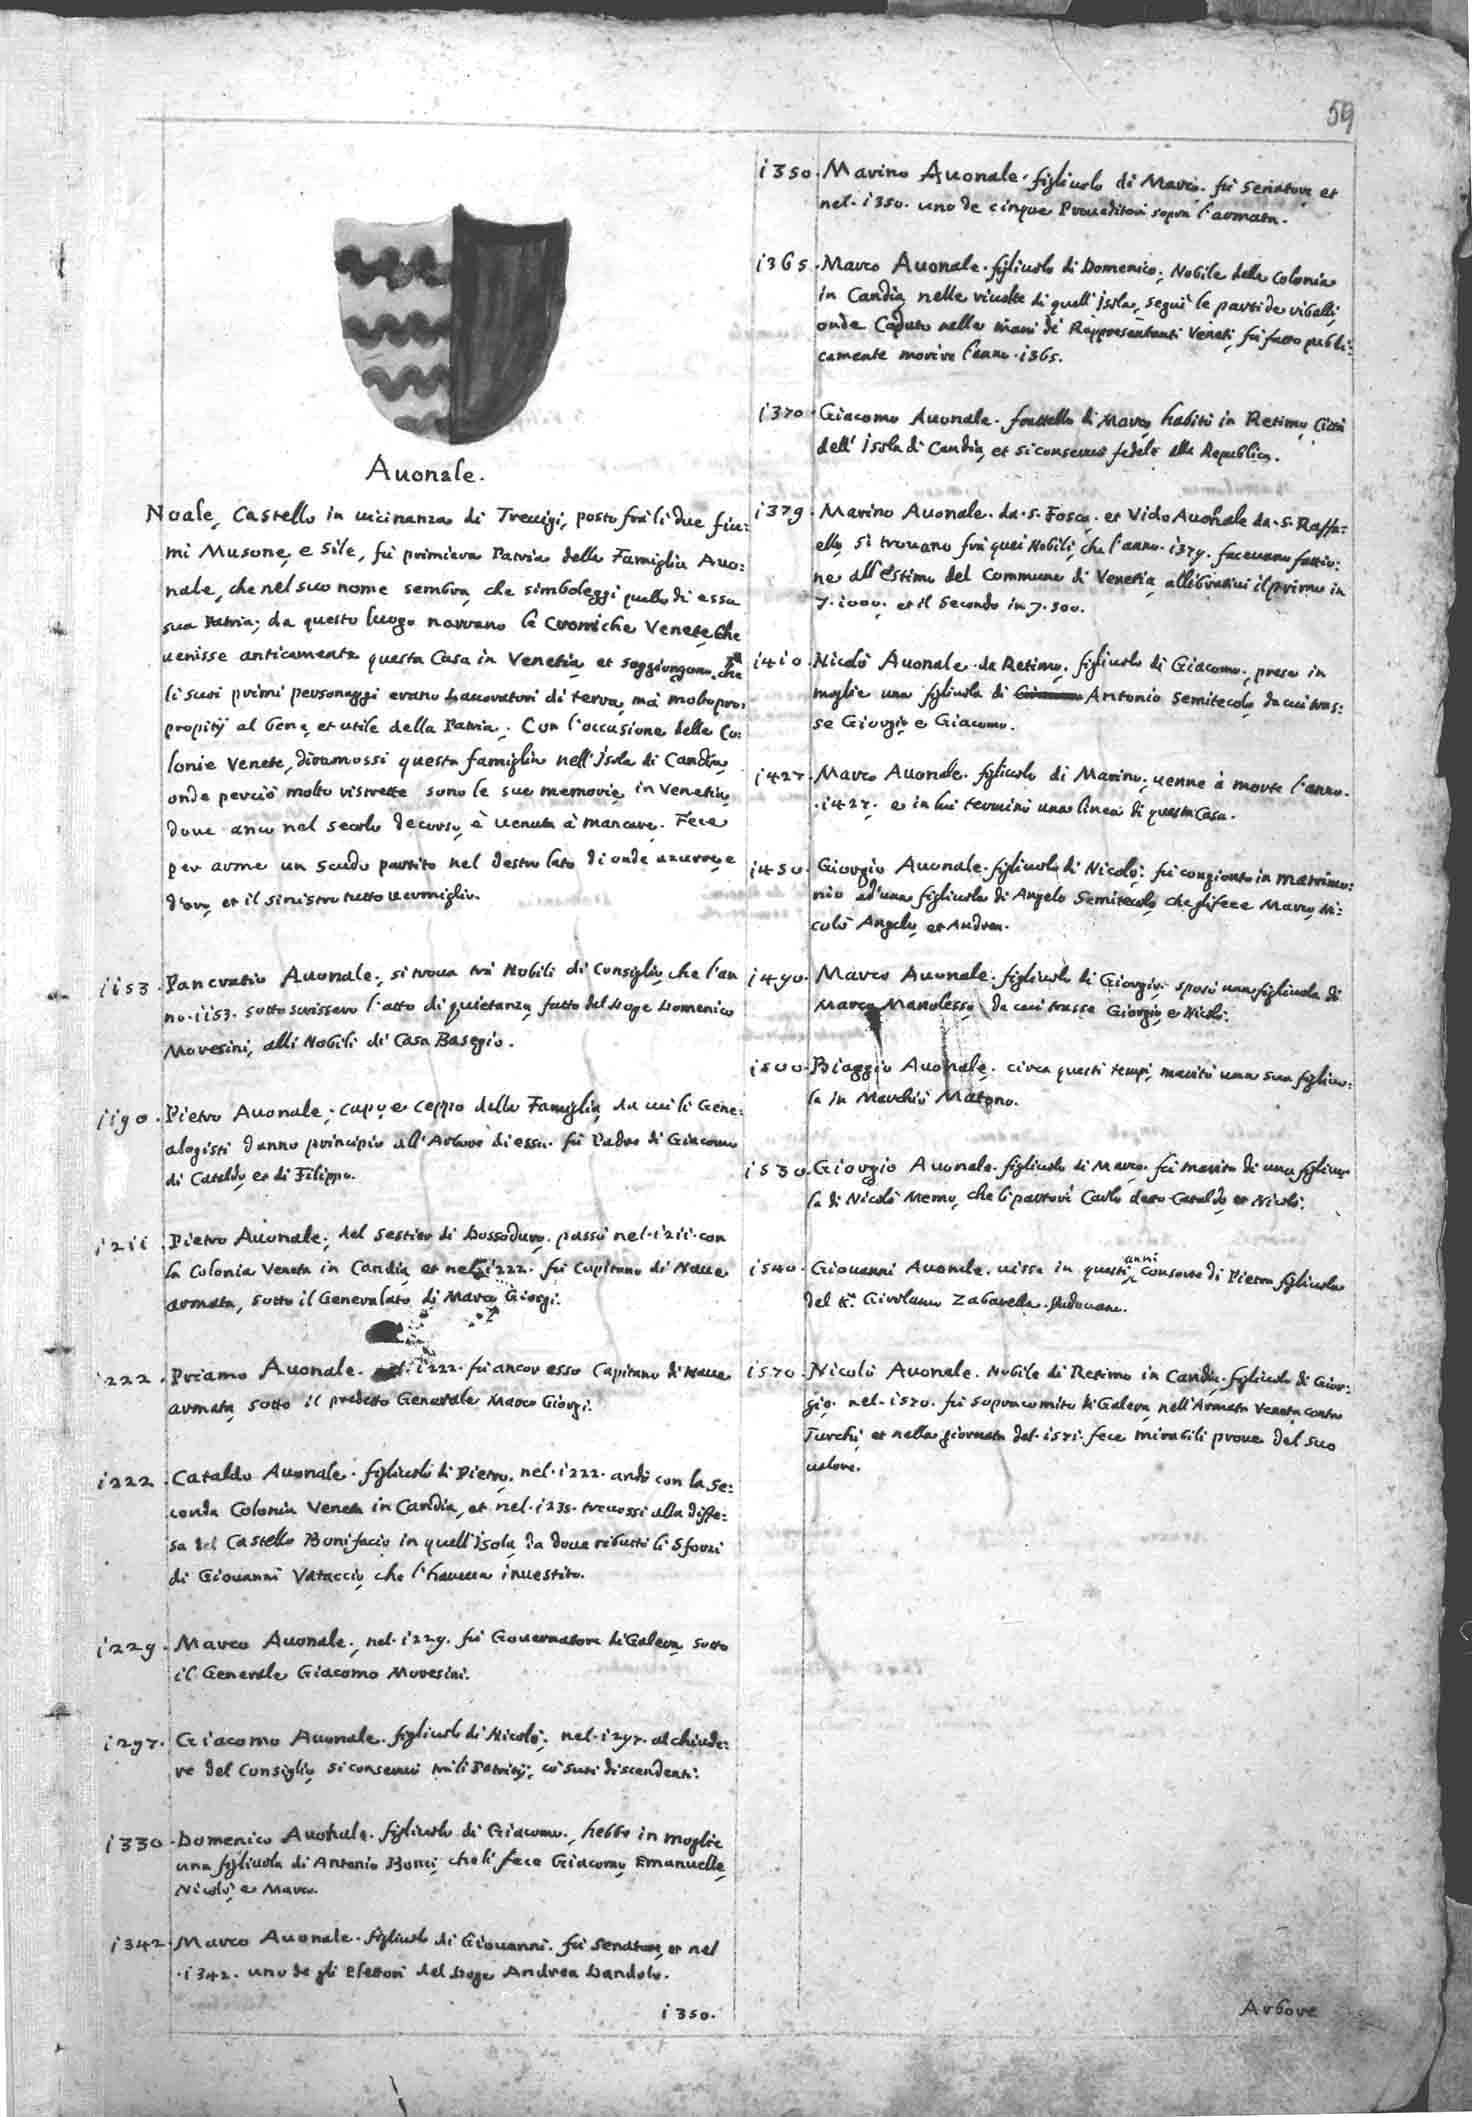 59
Auonale.
Noale, Castello in uicinanza di Treuigi, posto frà li due fiu:
mi Musone, e Sile, fù primiera Patria della Famiglia Auo:
nale, che nel suo nome sembra, che simboleggi quello di essa
sua Patria; da questo luogo narrano le Croniche Venete, che
uenisse anticamente questa Casa in Venetia, et soggiongono, che
li suoi primi personaggi erano Lauoratori di terra, mà molto pro:
propitÿ al bene, et utile della Patria. Con l'occasione delle Co:
lonie Venete, diramossi questa famiglia nell'Isola di Candia,
onde perciò molto ristrette sono le sue memorie in Venetia,
doue anco nel secolo decorso, è uenuta à mancare. Fece
per arme un scudo partito nel destro lato di onde azurre, e
d'oro, et il sinistro tutto uermiglio.
1153. Pancratio Auonale, si troua trà Nobili di Consiglio, che l'an
no 1153. sottoscrissero l'atto di quietanza, fatto del Doge Domenico
Moresini, alli Nobili di Casa Basegio.
1190. Pietro Auonale, capo, e ceppo della Famiglia, da cui li Gene:
alogisti danno principio all'Arbore di essa. fù Padre di Giacomo
di Cataldo, et di Filippo.
1211. Pietro Auonale, del sestier di Dossoduro. passò nel 1211. con
la Colonia Veneta in Candia, et nel 1222. fù Capitano di Naue
armata, sotto il Generalato di Marco Giorgi.
1222. Priamo Auonale. 1222. fù ancor esso Capitano di Naue
armata, sotto il predetto Generale Marco Giorgi.
1222. Cataldo Auonale. figliuolo di Pietro, nel 1222. andò con la se:
conda Colonia Veneta in Candia, et nel 1235. trouossi alla diffe:
sa del Castello Bonifacio in quell'Isola, da doue ributtò li sforzi
di Giouanni Vataccio, che l'haueua inuestito.
1229. Marco Auonale, nel 1229. fù Gouernatore di Galera, sotto
il Generale Giacomo Moresini.
1297. Giacomo Auonale. figliuolo di Nicolò, nel 1297. al chiude:
re del Consiglio, si conseruò trà li Patritÿ, cò suoi discendenti.
1330. Domenico Auonale. figliuolo di Giacomo, hebbe in moglie
una figliuola di Antonio Bonci, che li fece Giacomo, Emanuelle,
Nicolò, e Marco.
1342. Marco Auonale. figliuolo di Giouanni. fù senatore, et nel
1342. uno de gli Elettori del Doge Andrea Dandolo.
1350.
1350. Marino Auonale. figliuolo di Marco. fù senatore et
nel 1350. uno de cinque Proueditori sopra l'armata.
1365. Marco Auonale. figliuolo di Domenico, Nobile della Colonia
in Candia, nelle riuolte di quell'Isola, seguì le parti de ribelli,
onde Caduto nelle mani de Rappresentanti Veneti, fù fatto publi:
camente morire l'anno 1365.
1370. Giacomo Auonale. frattello di Marco, habitò in Retimo, Città
dell'Isola di Candia, et si conseruò fedele alla Republica.
1379. Marino Auonale. da S. Fosca. et Vido Auonale da S. Raffa:
ello, si trouano frà quei Nobili, che l'anno 1379. faceuano fattio:
ne all'Estimo del Commune di Venetia, allibratiui il primo in
7. 1000. et il Secondo in 7. 300.
1410. Nicolò Auonale da Retimo, figliuolo di Giacomo, prese in
moglie una figliuola di Antonio Semitecolo, da cui tras:
se Giorgio, e Giacomo.
1427. Marco Auonale. figliuolo di Marino, uenne à morte l'anno
1427. e in lui terminò una linea di questa Casa.
1450. Giorgio Auonale. figliuolo di Nicolò, fù congionto in matrimo:
nio ad'una figliuola di Angelo Semitecolo, che gli fece Marco, Ni:
colò Angelo, et Andrea.
1490. Marco Auonale. figliuolo di Giorgio. sposò una figliuola di
Marco Manolesso, da cui trasse Giorgio, e Nicolò.
1500. Biaggio Auonale. circa questi tempi, maritò una sua figliuo:
la in Marchiò Matono.
1530. Giorgio Auonale. figliuolo di Marco. fù marito di una figliuo
la di Nicolò Memo, che li partorì Carlo detto Cataldo, et Nicolò.
1540. Giouanni Auonale. uisse in questi anni consorte di Pietra figliuola
del K.r Girolamo Zabarella. Padouano.
1570. Nicolò Auonale. Nobile di Retimo in Candia. figliuolo di Gior:
gio. nel 1570. fù sopracomito di Galera, nell'Armata Veneta contro
Turchi, et nella giornata del 1571. fece mirabili proue del suo
ualore.
Arbore